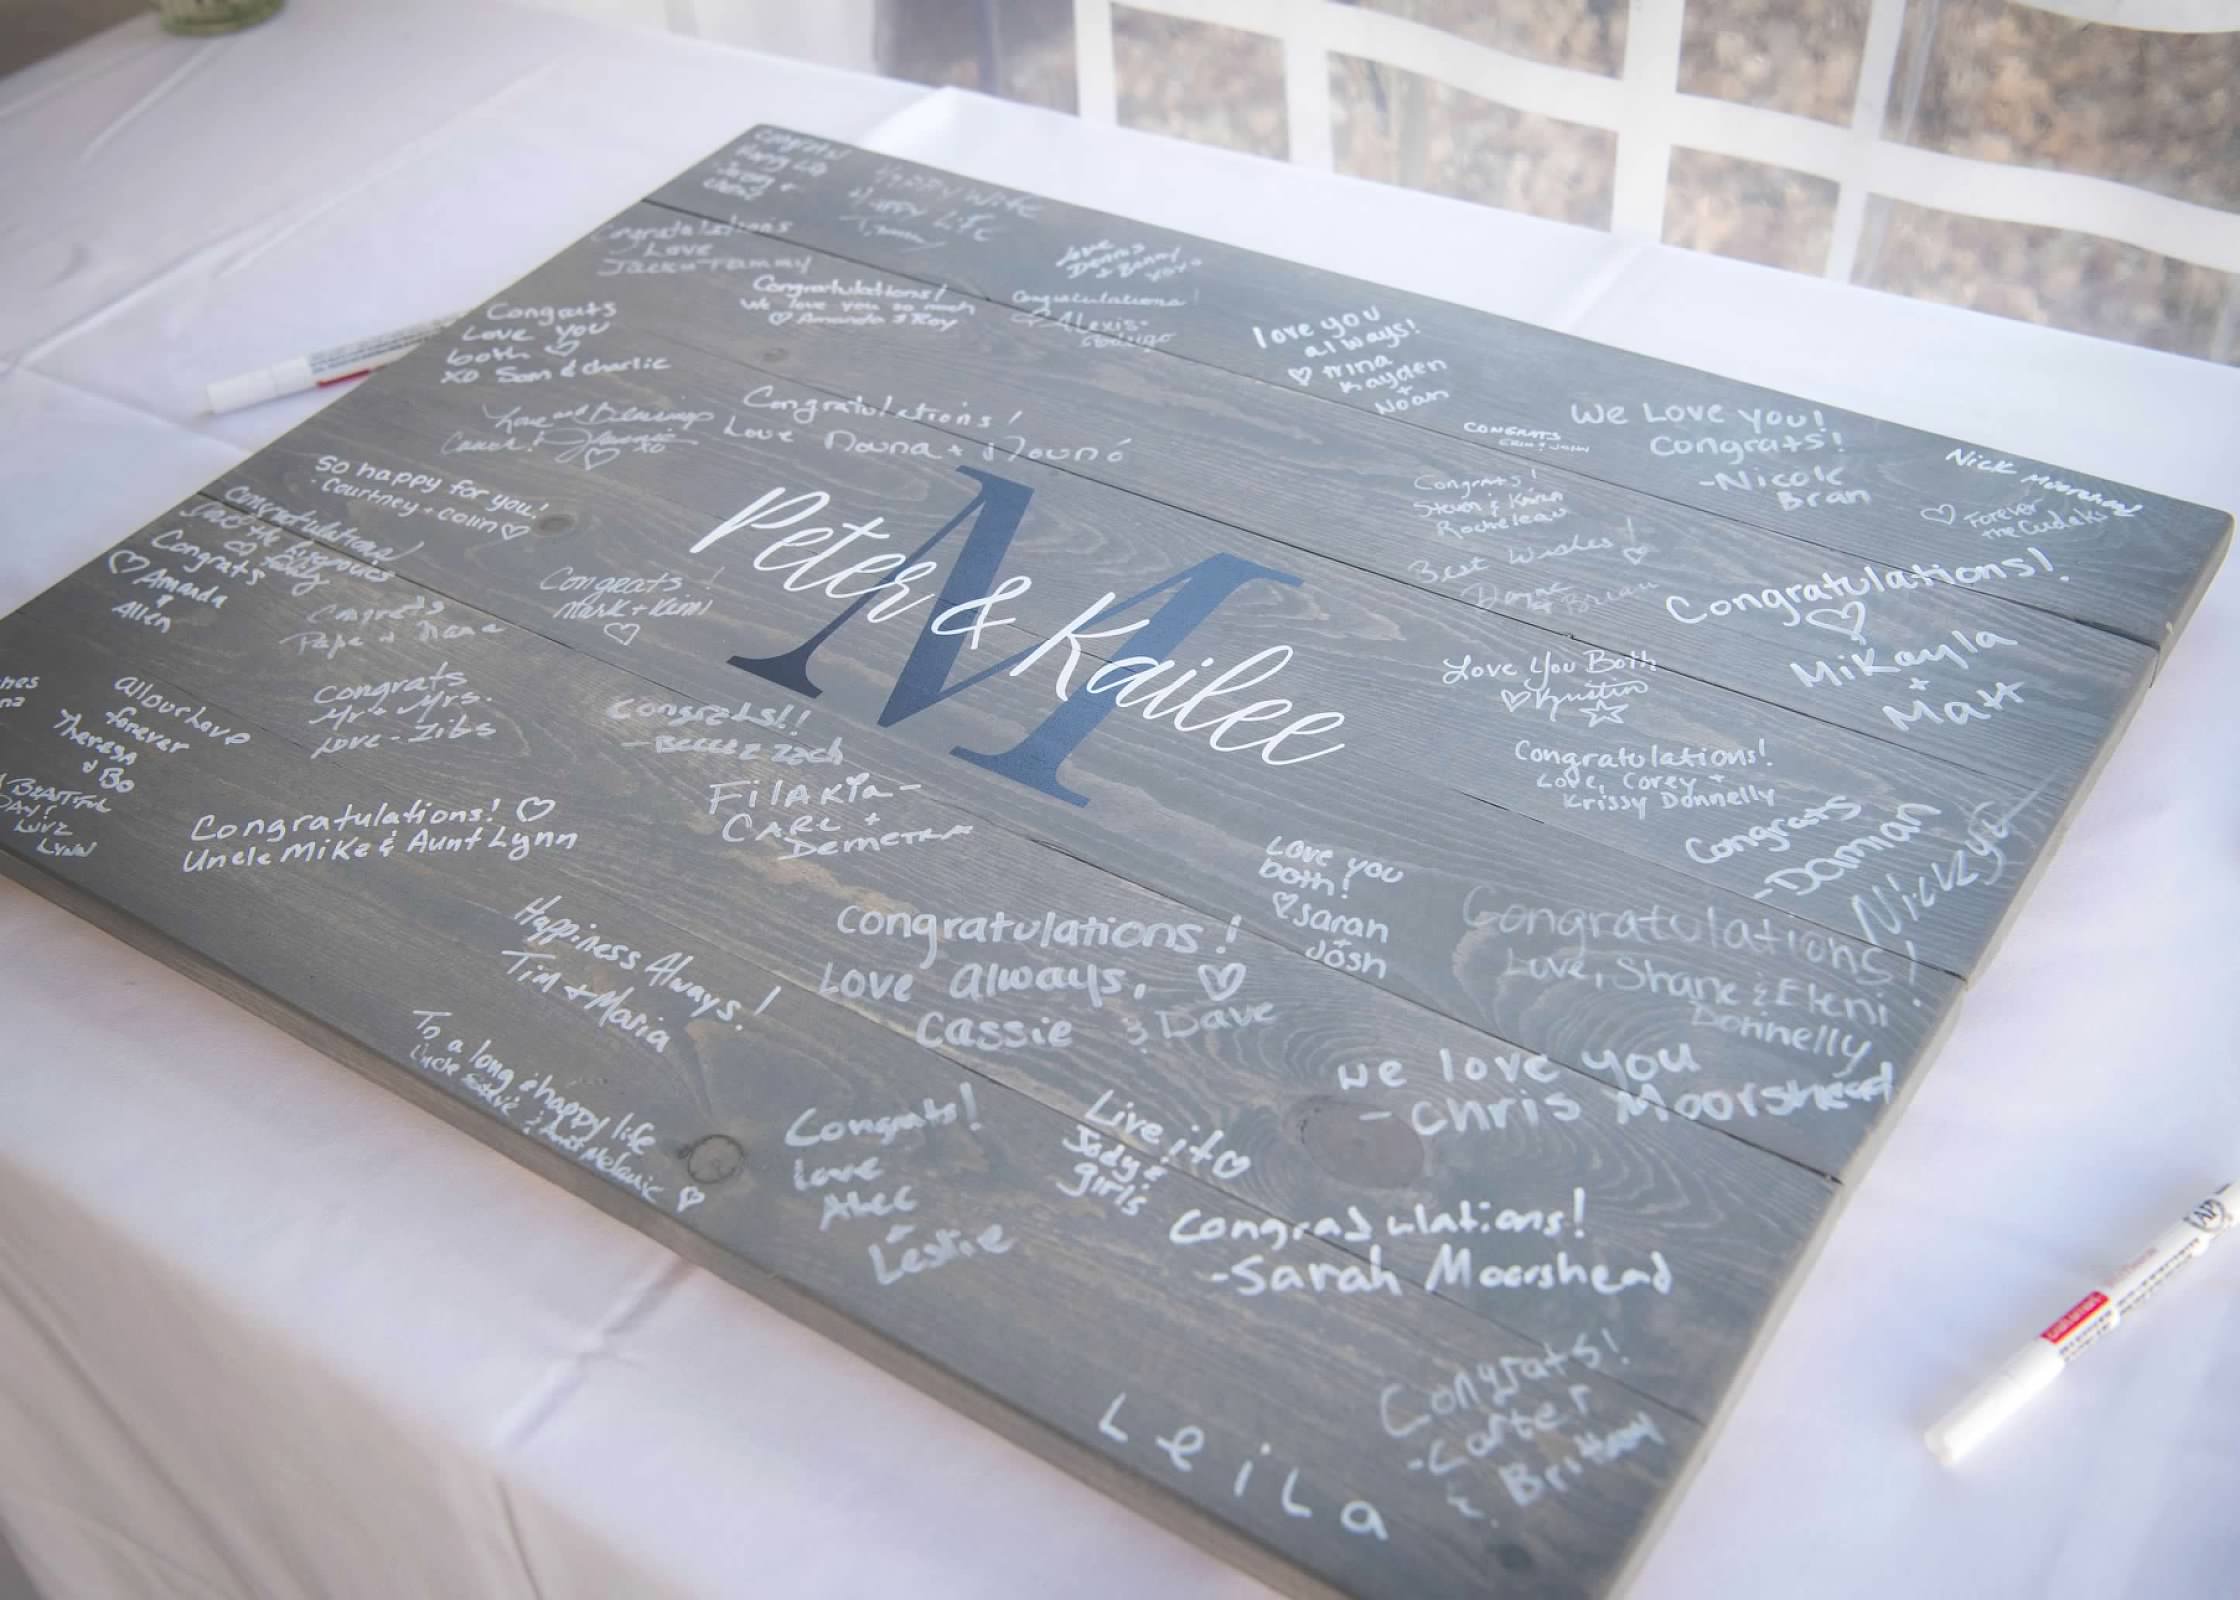 Congrats
HAPPY Wife
HAPPY Life
Congratulations
Love
Jack & Tammy
Love
Dennis
& Benny
xoxo
Congratulations!
We love you so much
♡ Amanda & Roy
Congratulations!
Alexis
Congrats
Love you
both ♡
xo Sam & Charlie
love you
always!
♡ Trina
Kayden
+
Noah
Love and Blessings
xo
Congratulations!
Love Nouna + Nouno
CONGRATS
ERIN & JOHN
We Love you!
Congrats!
-Nicole
Bran
Nick Moorshead
♡ Forever
the Cudaks
So happy for you!
Courtney + Colin ♡
Congrats!
Steven & Karen
Rocheleau
Congratulations
Congrats
♡ Amanda
&
Allen
Congrats
Pape & Nana
Congrats!
Mark + Kimi
♡
Peter & Kailee
M
Best Wishes! ♡
Dayne
& Brian
Congratulations!
♡
Mikayla
+
Matt
Love You Both
♡ Kristin ☆
all our love
forever
Theresa
& Bo
Congrats
Mr + Mrs.
Love - Zibs
Congrats!!
Congratulations!
Love, Corey +
Krissy Donnelly
BEAUTIFUL
DAY!
LUVZ
LYNN
Congratulations! ♡
Uncle Mike & Aunt Lynn
FilAKIA-
CARL +
DEMETRA
Congrats
-Damian
Love you
both!
♡ Sarah
+
Josh
Congratulations!
Love, Shane & Eleni
Donnelly
Happiness Always!
Tim & Maria
Congratulations!
Love always, ♡
Cassie & Dave
To a long & happy life
Uncle Steve & Aunt Melanie ♡
we love you
- Chris Moorshead
Congrats!
Love
Alec
+
Leslie
Live it ♡
Jody &
girls
Congradulations!
-Sarah Moorshead
Congrats!
-Carter
& Brittany
Leila